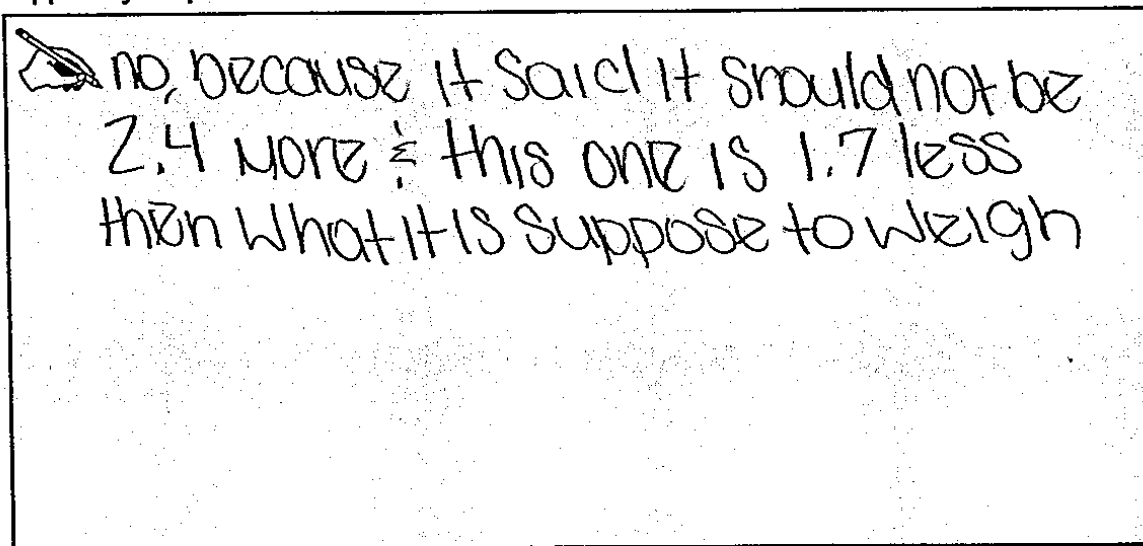 no, because it said it should not be
2.4 more & this one is 1.7 less
then what it is suppose to weigh